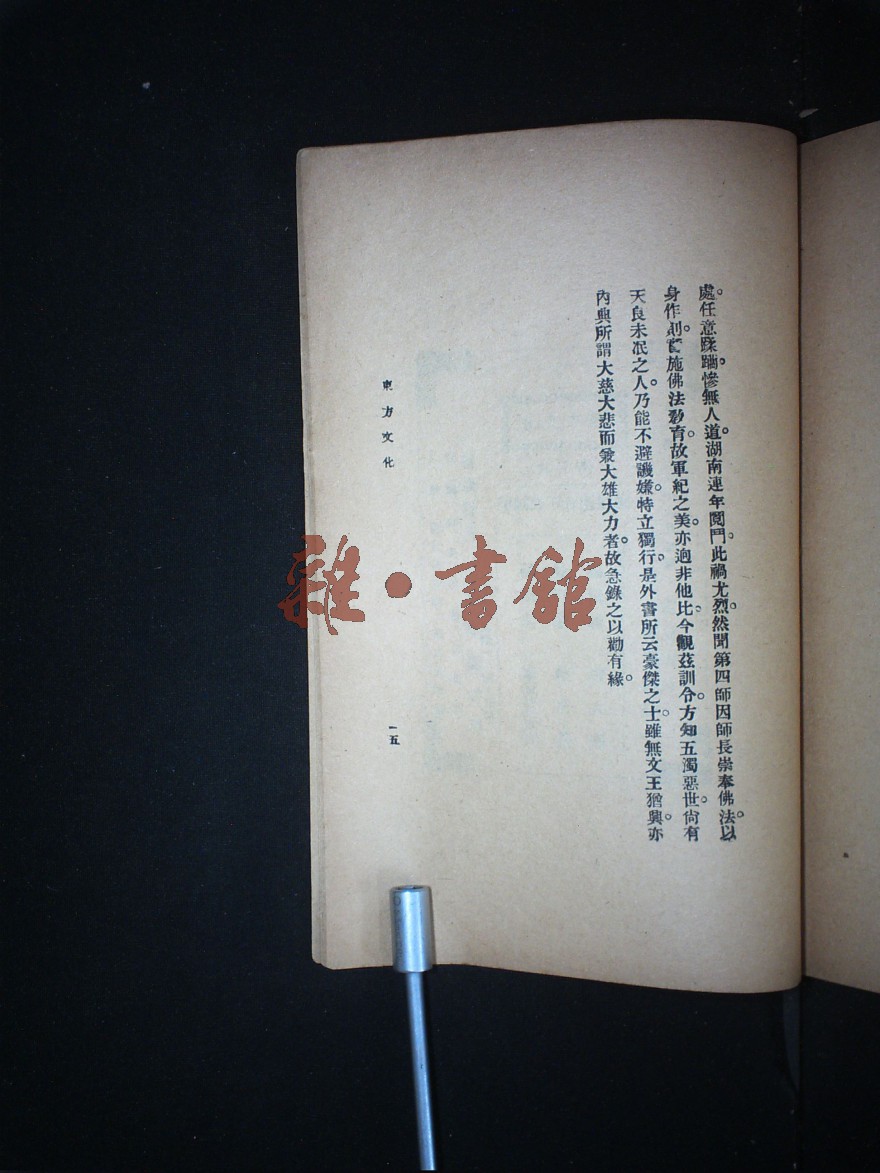 處。任意蹂躪。慘無人道。湖南連年鬩鬥。此禍尤烈。然聞第四師因師長崇奉佛法。以
身作則。施佛法敎育。故軍紀之美。亦逈非他比。今觀茲訓令。方知五濁惡世。尙有
天良未泯之人。乃能不避譏嫌。特立獨行。是外書所云豪傑之士。雖無文王猶興。亦
內典所謂大慈大悲而兼大雄大力者。故急錄之以勸有緣。
東方文化
一五
雜·書館